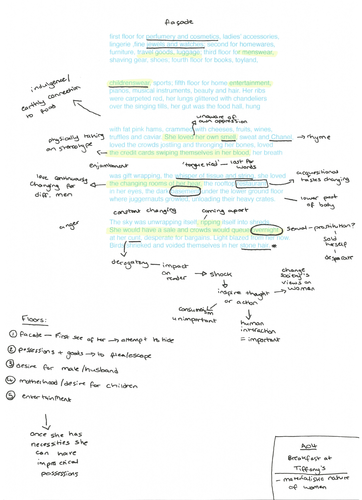 facade
first floor for perfumery and cosmetics, ladies' accessories,
lingerie, fine jewels and watches, second for homewares,
furniture, travel goods, luggage, third floor for menswear,
shaving gear, shoes, fourth floor for books, toyland,
childrenswear, sports, fifth floor for home entertainment,
pianos, musical instruments, beauty and hair. Her ribs
were carpeted red, her lungs glittered with chandeliers
over the singing tills, her gut was the food hall, hung
indulgence/
earthly connection
to food
unaware of
own oppression
with fat pink hams, crammed with cheeses, fruits, wines,
truffles and caviar. She loved her own smell, sweat and Chanel
→ rhyme
loved the crowds jostling and thronging her bones, loved
the credit cards swiping themselves in her blood, her breath
physically taking
on stereotype
enjambment
'tongue tied' — lost for
words
was gift wrapping, the whisper of tissue and string, she loved
the changing rooms of her heart, the rooftop restaurant
in her eyes, the dark under the lower ground floor
where juggernauts growled, unloading their heavy crates.
love continuously
changing for
diff. men
tastes changing
lower part of
body
constant changing
coming apart
anger
The sky was unwrapping itself, ripping itself into shreds.
She would have a sale and crowds would queue overnight
at her cunt, desperate for bargains. Light blazed from her now
Birds shrieked and voided themselves in her stone hair.
sexual - prostitution?
sold
herself
desperate
derogatory → impact
on
reader
→ shock
inspire thought
or action
change
society's
views on
women
consumerism
unimportant
human
interaction
= important
Floors:
① facade — first see of her → attempt to hide
② possessions + goods → to flee/escape
③ desire for male/husband
④ motherhood/desire for children
⑤ entertainment
once she has
necessities she
can have
impractical
possessions
AO4
Breakfast at
Tiffany's
- materialistic nature
of women